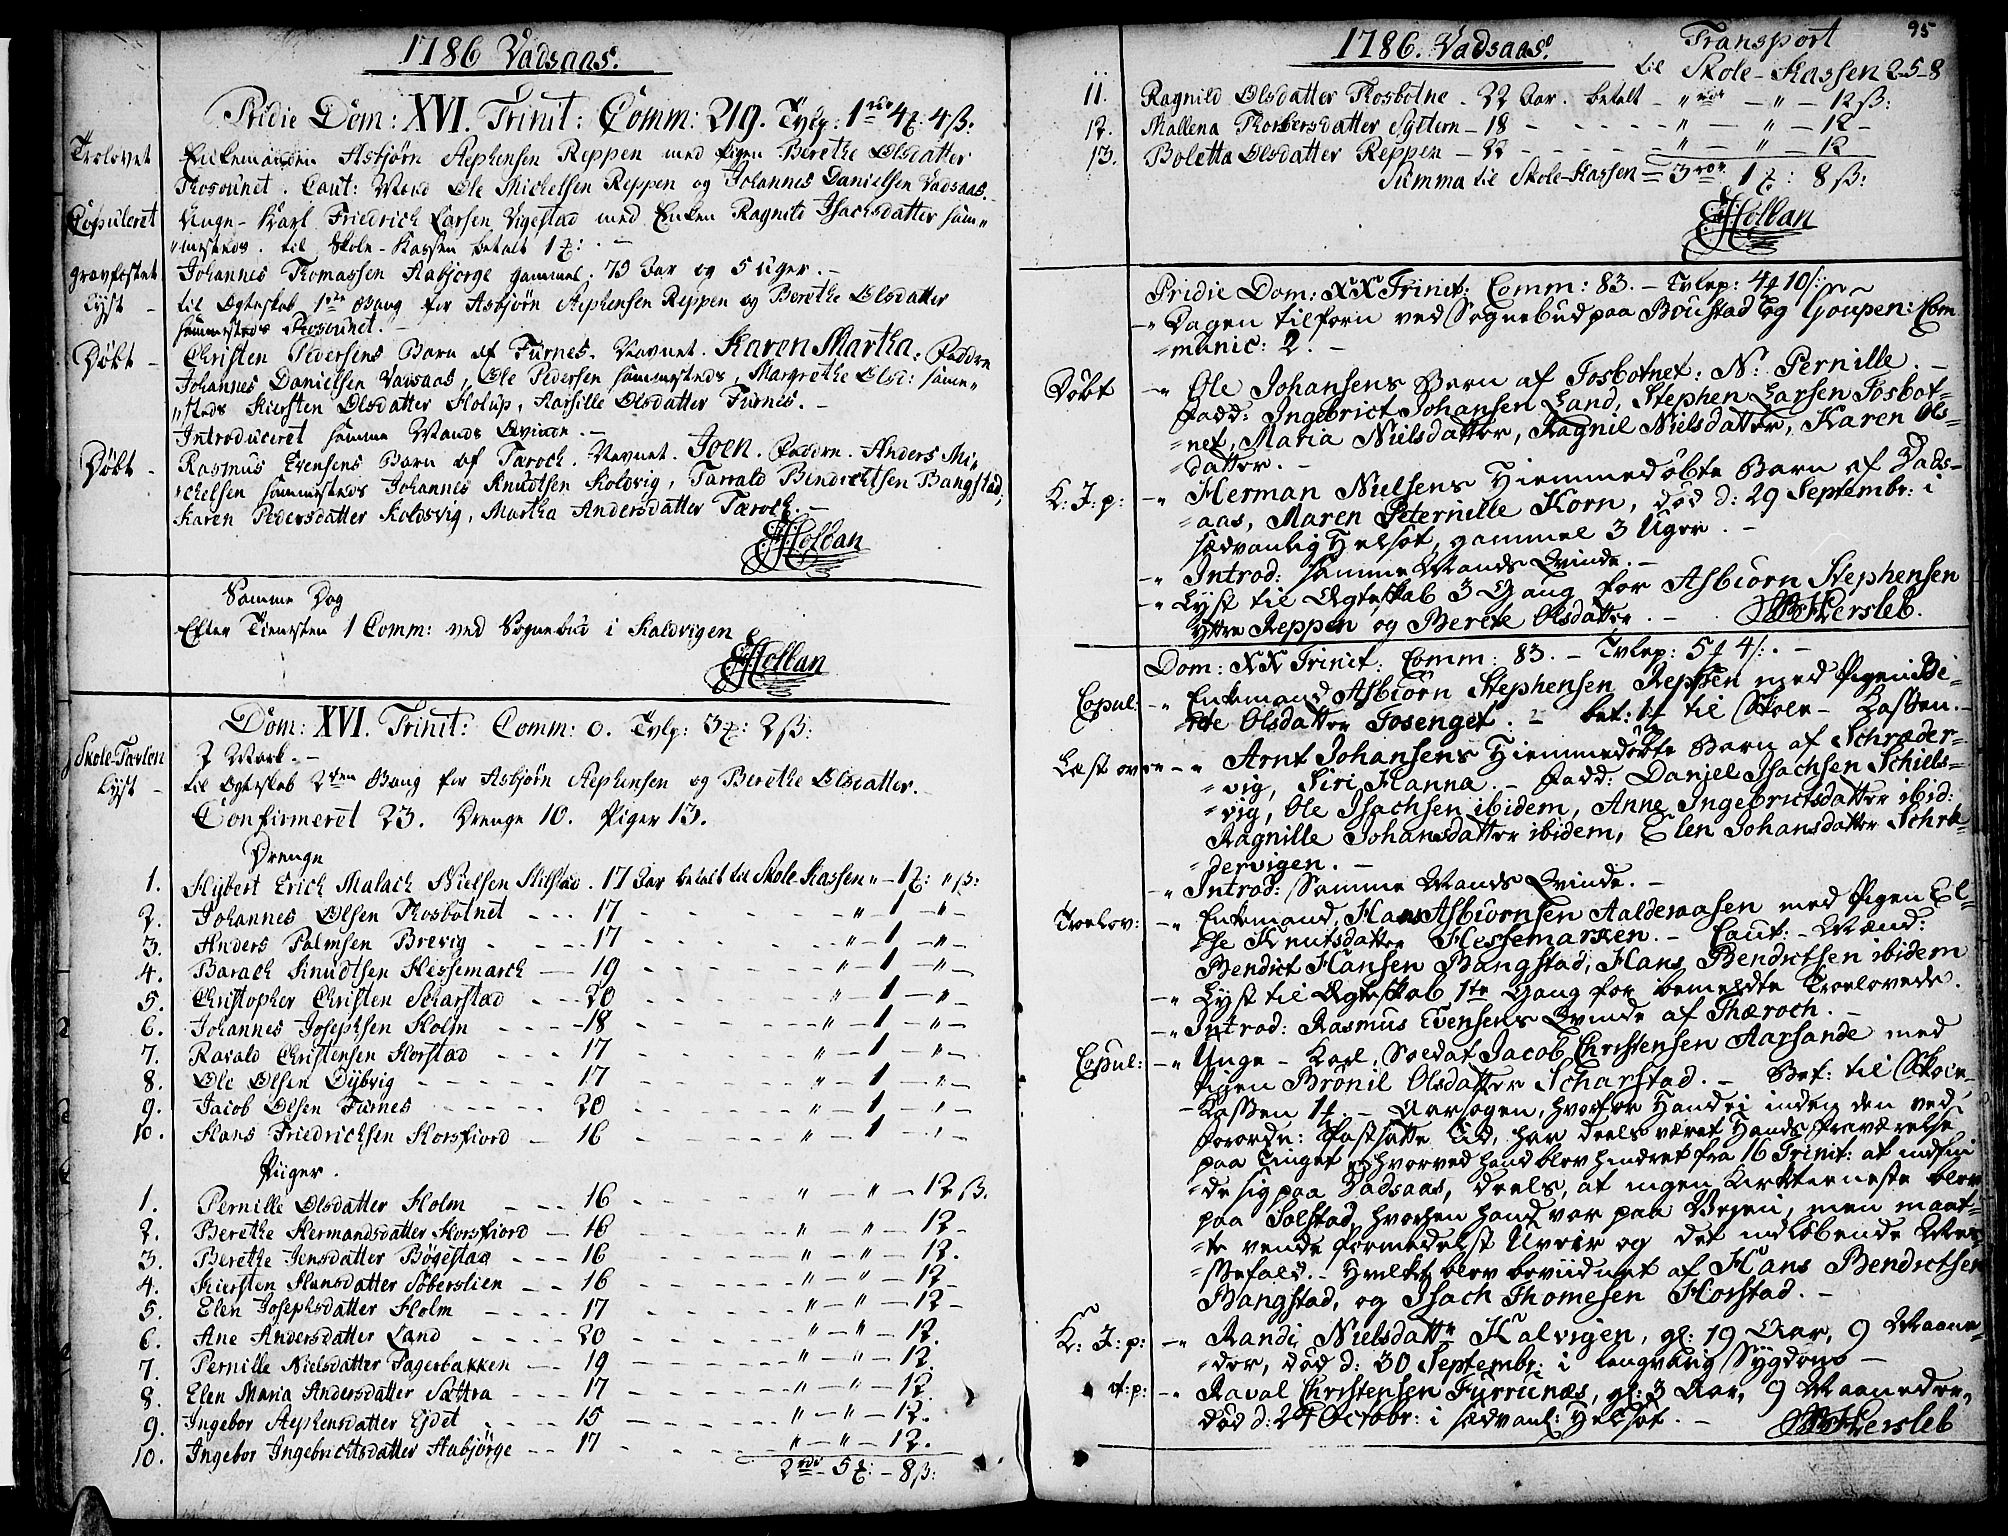 1786 Vadsaas.
Pridie Dom: XVI. Trinit: Comm: 219. Tvlp: 1 rdr 4 ₰: 4 ß:
Troelovet
Enkemanden Asbjørn Stephensen Reppen med Pigen Berethe Olsdatter
Fosounet. Caut: Mænd Ole Michelsen Reppen og Johannes Danielsen Vadsaas.
Copuleret
Unge-Karl Friedrich Larsen Vigestad med Enken Ragnild Isachsdatter sam„
„mesteds. til Skole-Kassen betalt 1 ₰: -
gravfæstet
Johannes Thomassen Aabjørge gammel. 75 Aar og 5 uger. -
Lyst -
til Egteskab 1ste Gang for Asbjørn Stephensen Reppen og Berethe Olsdatter
sammesteds Fosounet. -
Døbt -
Christen Pedersens Barn af Furnes. Navnet. Karen Martha. Faddre
Johannes Danielsen Vadsaas, Ole Pedersen sammesteds, Margrethe Olsd: samme„
„steds Kiersten Olsdatter Holup, Marsille Olsdatter Furnes. -
Introduceret samme Mands Qvinde. -
Døbt -
Rasmus Evensens Barn af Taroch. Navnet. Joen. Faddre. Anders Mi„
„chelsen sammesteds Johannes Knudtsen Koldvig, Tarrald Bendrichtsen Bangstad,
Karen Pedersdatter Koldsvig, Martha Andersdatter Tæroch. -
Hollan
Samme Dag
Efter Tienesten 1 Comm: ved Sognebud i Kaldvigen
Hollan
Dom: XVI. Trinit: Comm: 0. Tvlp: 3 ₰: 2 ß:
Skole-Tavlen
7 Mark. -
Lyst -
til Egteskab 2den Gang for Asbjørn Stephensen og Berethe Olsdatter. -
Confirmeret 23. Drenge 10. Piger 13.
Drenge
1. Hijbert Erich Malach Nielsen Milstad. 17 Aar betalt til Skole Kassen „ - 1 ₰: „ ß:
2. Johannes Olsen Fosbotnet - - - 17 - - - „ - 1 - „ -
3. Anders Palmsen Brevig - - - 17 - - - „ - 1 - „ -
4. Barach Knudtsen Hessemarch - - 19 - - - „ - 1 - „ -
5. Christopher Christen Scharstad - - - 20 - - - „ - 1 - „ -
6. Johannes Josephsen Holm - - - 18 - - - „ - 1 - „ -
7. Ravald Christensen Horstad - - - 17 - - - „ - 1 - „ -
8. Ole Olsen Dijbvig - - - 17 - - - „ - 1 - „ -
9. Jacob Olsen Furnes - - - 20 - - - „ - 1 - „ -
10. Hans Friedrichsen Horsfiord - 16 - - - „ - 1 - „ -
Piiger.
1. Pernille Olsdatter Holm - - - 16 - - - „ - „ - 12 ß.
2. Berethe Hermandsdatter Horsfiord - 16 - - - „ - „ - 12 -
3. Berethe Jensdatter Bøgestad - - - 16 - - - „ - „ - 12.
4. Kiersten Hansdatter Søberslien - - 16 - - - „ - „ - 12 -
5. Elen Josephsdatter Holm - - - 17 - - - „ - „ - 12 -
6. Ane Andersdatter Land - - - 20 - - - „ - „ - 12.
7. Pernille Nielsdatter Fagerbakken - - 19 - - - „ - „ - 12.
8. Elen Maria Andersdatter Sættra - - - 17 - - - „ - „ - 12.
9. Ingebor Stephensdatter Ejdet - - - 15 - - - „ - „ - 12.
10. Ingebor Ingebrichtsdatter Aabjørge - - 17 - - - „ - „ - 12.
2 rdr - 5 ₰: - 8 ß:
95
1786. Vadsaas.
Transport
til Skole-Kassen 2-5-8
11. Ragnild Olsdatter Fosbotne - 22 Aar. betalt - „ rdr - „ - 12 ß:
12. Mallena Thorbersdatter Syltern - 18 - - - „ - „ - 12 -
13. Boletta Olsdatter Reppen - 22 - - - „ - „ - 12
Summa til Skole-Kassen = 3 rdr 1 ₰: 8 ß:
Hollan
Pridie Dom: XX Trinit: Comm: 83. - Tvlep: 4 ₰ 10 ß:
-„ Dagen tilforn ved Sognebud paa Boustad og Goupen: Com
=munic: 2. -
Døbt
-„ Ole Johansens Barn af Fosbotnet: N: Pernille. -
Fadd: Ingebrict Johansen Land, Stephen Larsen Fosbot=
=net, Maria Nielsdatter, Ragnil Nielsdatter, Karen Ols=
=datter. -
K: J: p:
-„ Herman Nielsens Hiemmedøbte Barn af Vads=
=aas, Maren Peternille Korn, død d: 29 Septembr: i
sædvanlig Helsot, gammel 3 Uger. -
-„ Introd: samme Mands Qvinde. -
-„ Lyst til Egteskab 3 Gang for Asbiorn Stephensen
Ytre Reppen og Berete Olsdatter. -
Hersleb.
Dom: XX Trinit: Comm: 83. - Tvlep: 5 ₰ 4 ß. -
Copul:
-„ Enkemand Asbiorn Stephensen Reppen med Pigen Be=
rete Olsdatter Fosenget. - bet: 1 ₰ til Skole-Kassen. -
Læst over
-„ Arnt Johansens Hiemmedøbte Barn af Schrøder=
=vig, Siri Hanna. - Fadd: Danjel Isachsen Schiels=
=vig, Ole Isachsen ibidem, Anne Ingebrictsdatter ibid:
Ragnille Johansdatter ibidem, Elen Johansdatter Schrø=
=dervigen. -
-„ Introd: Samme Mands Qvinde. -
Troelov:
-„ Enkemand, Hans Asbiornsen Aalderaasen med Pigen El=
se Knutsdatter Hessemarken. - Caut: - Mænd:
Bendict Hansen Bangstad, Hans Bendictsen ibidem
-„ Lyst til Egteskab 1ste Gang for bemeldte Troelovede.
-„ Introd: Rasmus Evensens Qvinde af Thæroch. -
Copul:
-„ Unge-Karl, Soldat Jacob Christensen Aarsande med
Pigen Brønil Olsdatter Scharstad. - Bet: til Skole-
-Kassen 1 ₰. - Aarsagen, hvorfor Hand ei inden den ved
Forordn: fastsatte Tid, har deels været Hands Fraværelse
paa Tinget, hvorved hand blev hindret fra 16 Trinit: at indfin
=de sig paa Vadsaas, deels, at ingen Kirktieneste blev
paa Solstad, hvorhen hand var paa Vejen, men maat=
=te vende formedelst Uveir og det indløbende
Mefald. - Hvilket blev bevidnet af Hans Bendictsen
Bangstad, og Isach Thomesen Horstad. -
K: J: p:
-„ Randi Nielsdattr Kalvigen, gl: 19 Aar, 9 Maane=
=der, død d: 30 Septembr: i langvarig Sygdom -
-„ Raval Christensen Furrunæs, gl: 3 Aar, 9 Maaneder,
død d: 24 Octobr: i sædvanl: Helsot. -
Hersleb